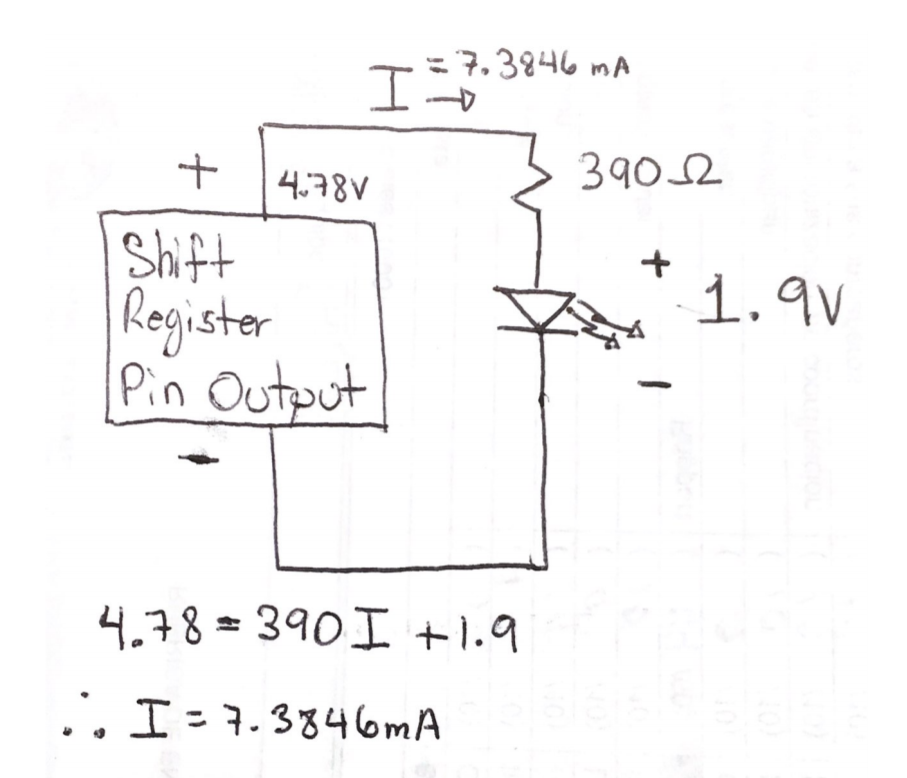 I = 7.3846 mA
+
4.78V
390Ω
Shift
Register
Pin Output
+
1.9V
-
-
4.78 = 390I + 1.9
∴ I = 7.3846mA